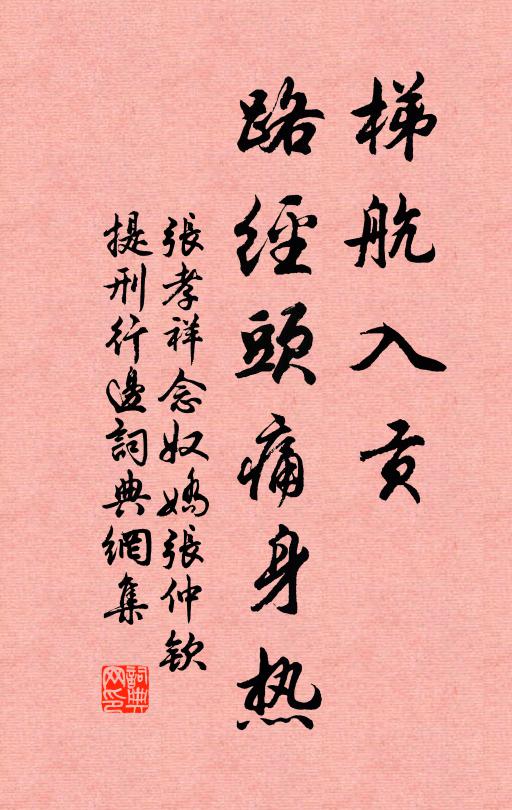 梯航入貢
路經頭痛身热
張孝祥念奴嬌張仲欽
提刑行邊詞典網集
詞典网印